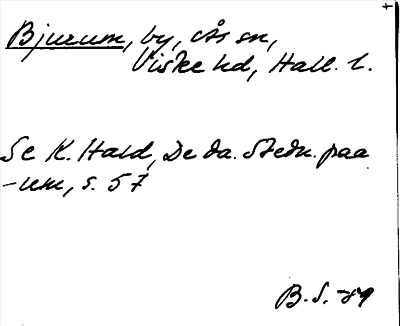 Bjurum, by, Ås sn,
Viske hd, Hall. l.
Se K. Hald, De da. Stedn. paa
-um, s. 57
B. S. -89